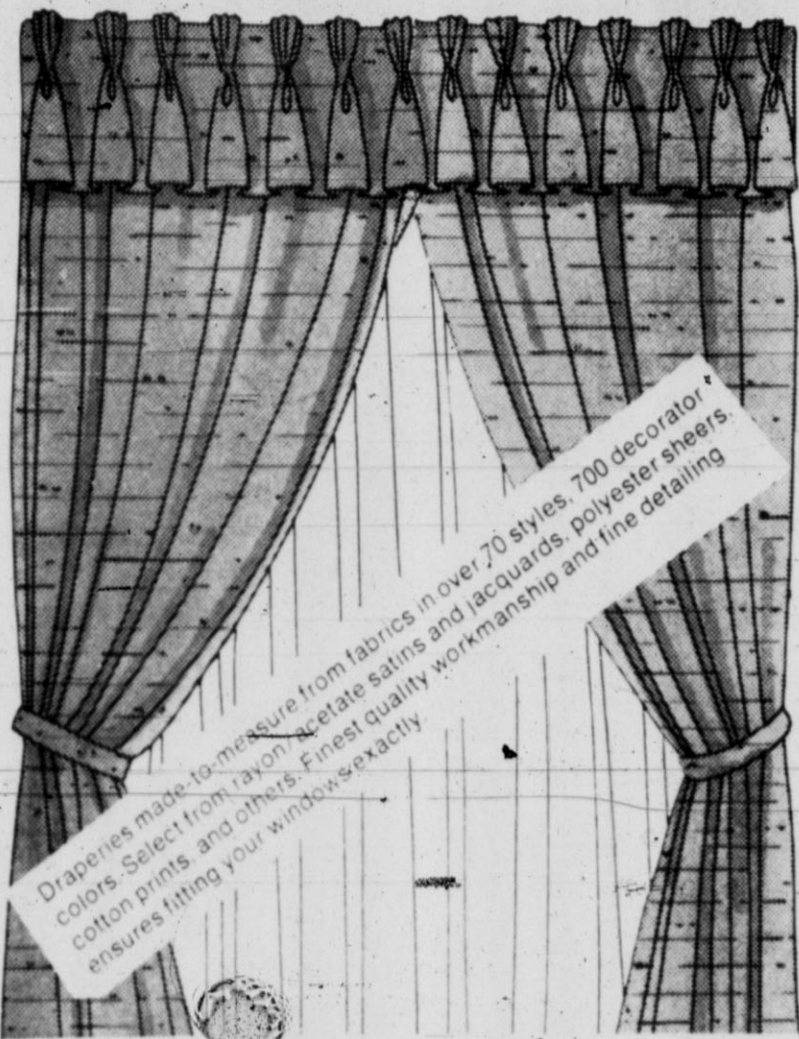 Draperies made-to-measure from fabrics in over 70 styles, 700 decorator
colors. Select from rayon/acetate satins and jacquards, polyester sheers,
cotton prints, and others. Finest quality workmanship and fine detailing
ensures fitting your windows exactly.